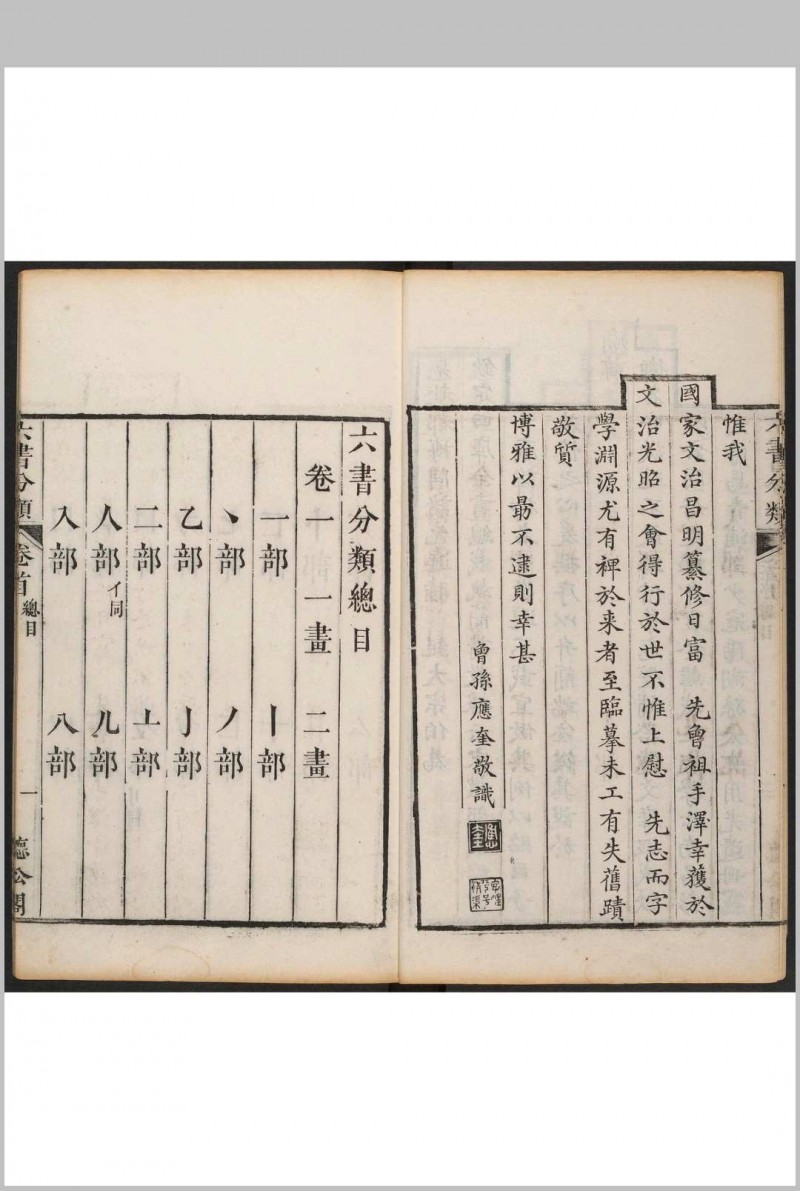 惟我
國家文治昌明纂修日富　先曾祖手澤幸獲於
文治光昭之會得行於世不惟上慰　先志而字
學淵源尤有裨於来者至臨摹未工有失舊蹟
敬質
博雅以最不逮則幸甚
曾孫應奎敬識
應奎
六書分類總目
卷一　一畫　二畫
一部　丨部
丶部　丿部
乙部　亅部
二部　亠部
人部亻同　儿部
入部　八部
六書分類　卷首　總目　一　聽松閣